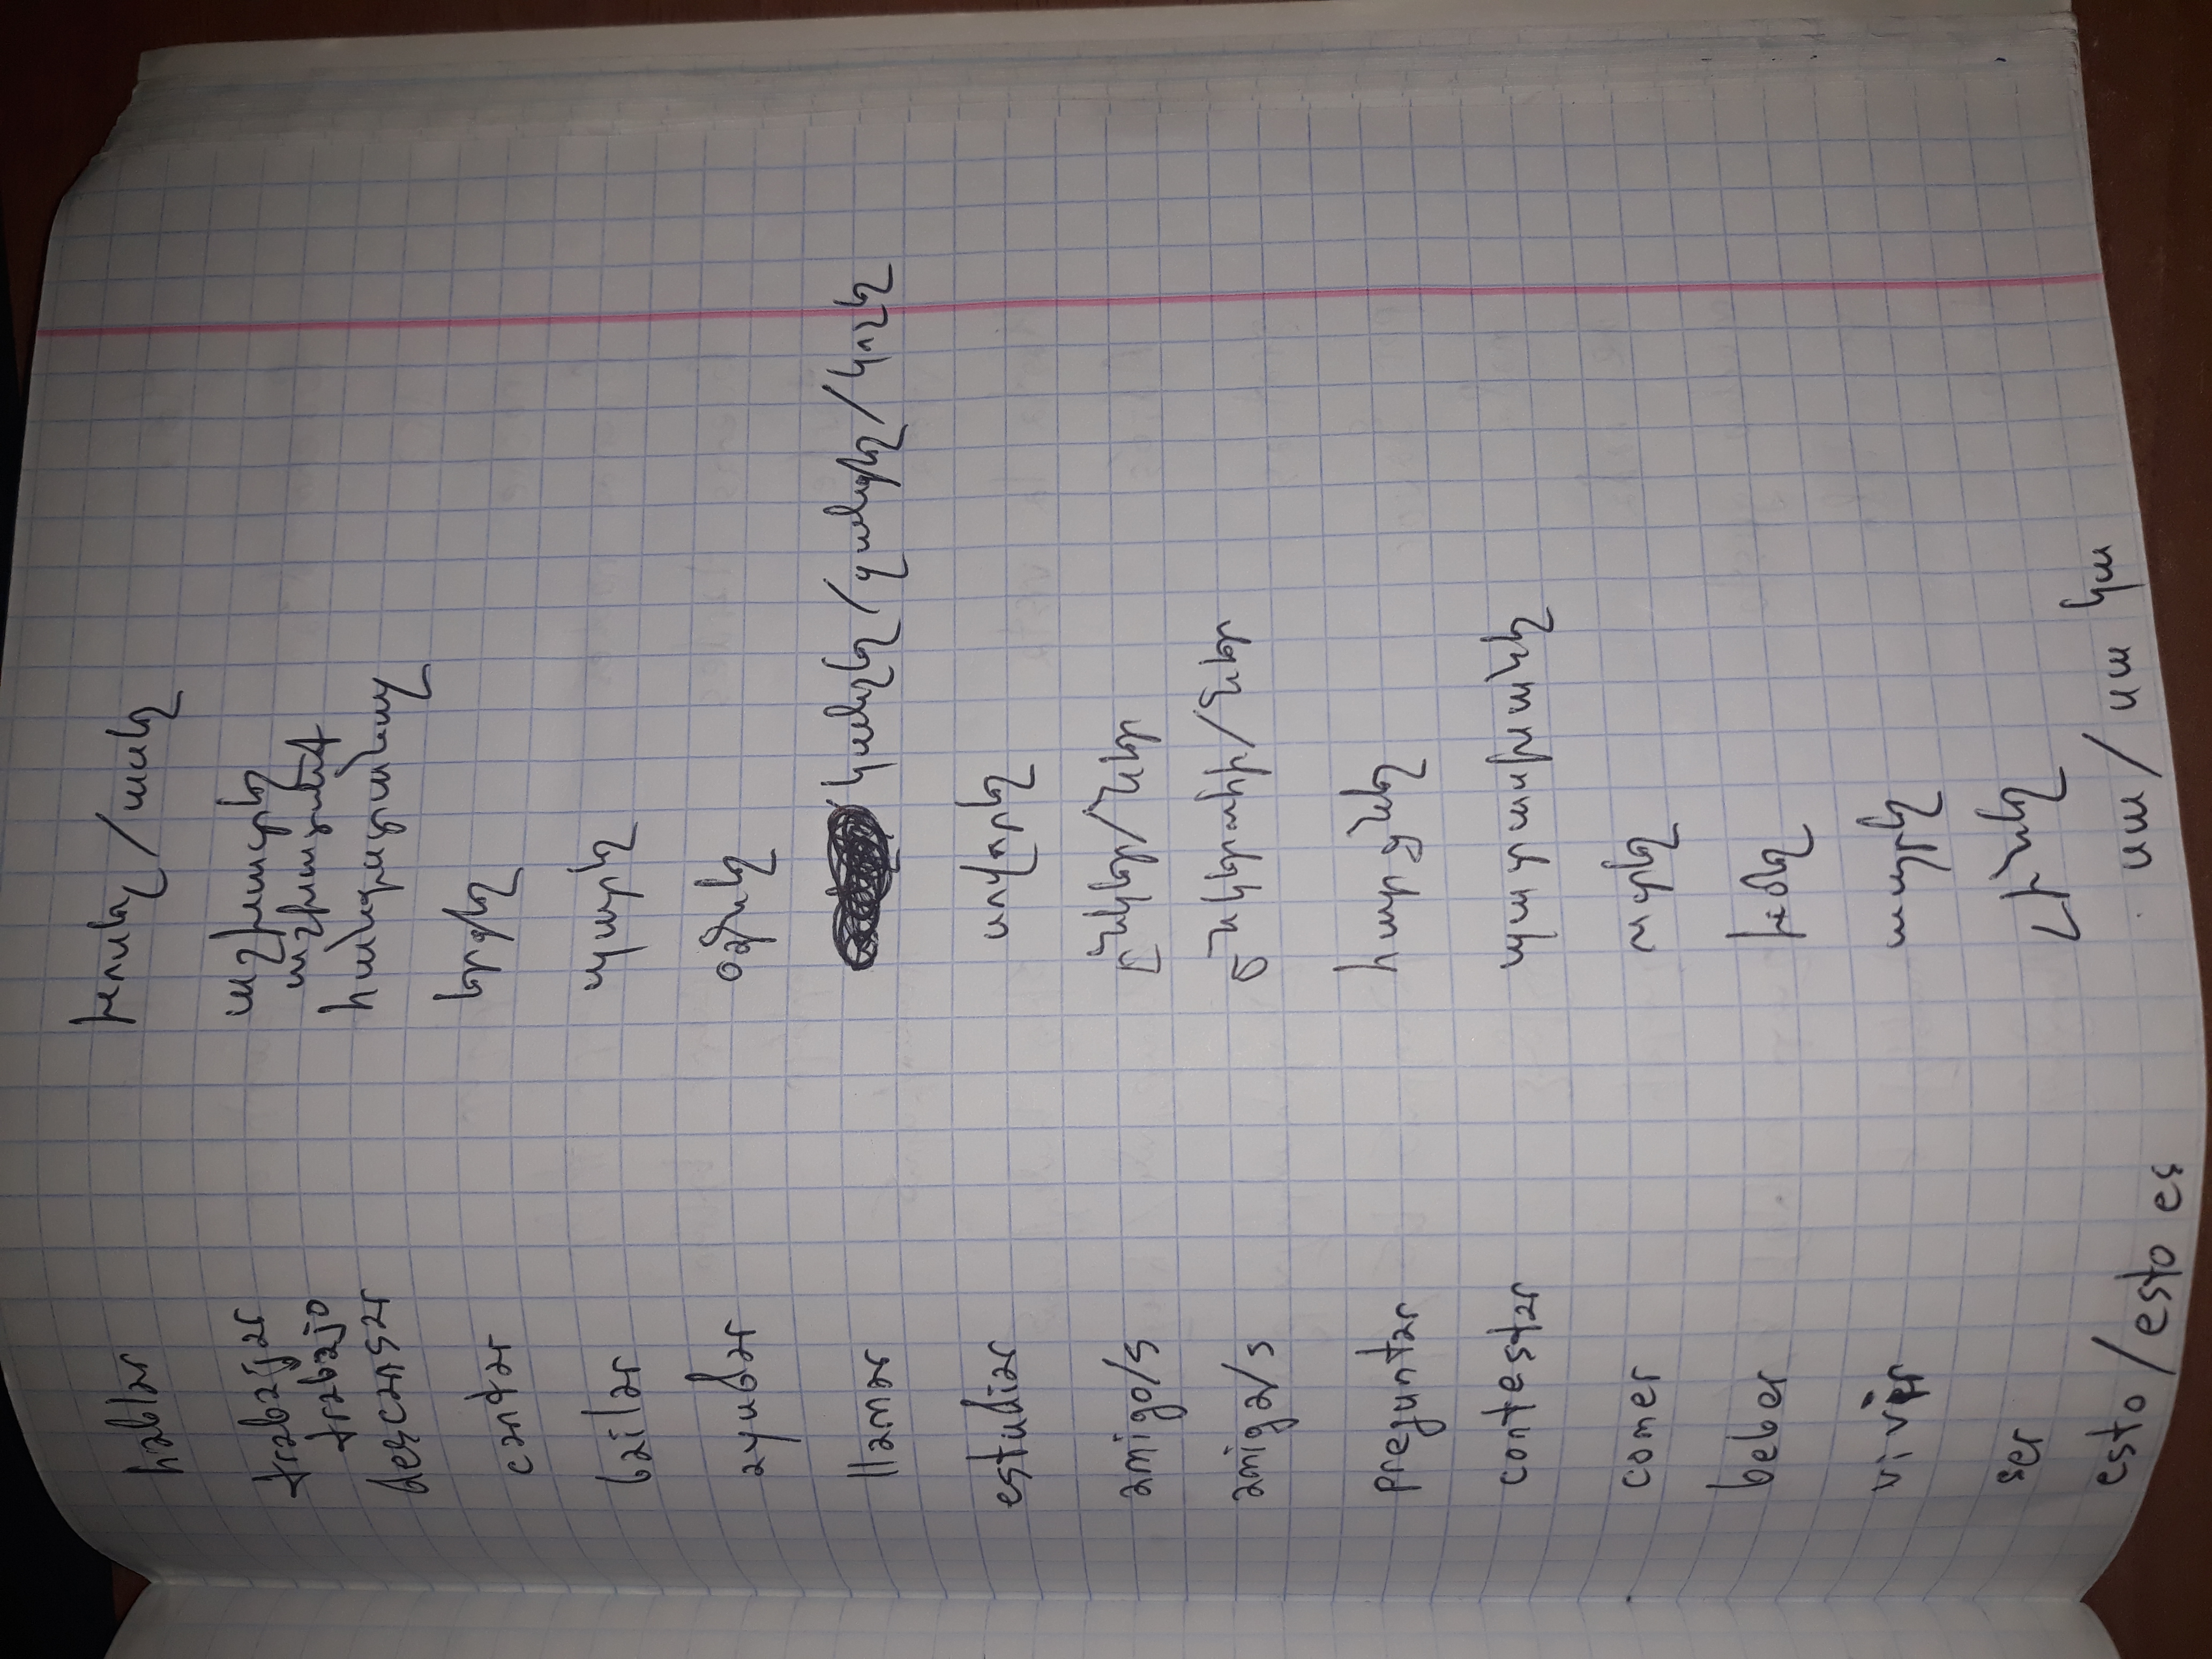 hablar խոսել / ասել
trabajar աշխատել
trabajo աշխատանք
descansar հանգստանալ
cantar երգել
bailar պարել
ayudar օգնել
llamar կանչել / զանգել / կոչել
estudiar սովորել
amigo/s ընկեր/ներ
amiga/s ընկերուհի/ներ
preguntar հարցնել
contestar պատասխանել
comer ուտել
beber խմել
vivir ապրել
ser լինել
esto / esto es սա / սա կա